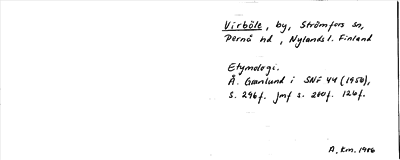 Virböle, by, Strömfors sn,
Pernå hd, Nylands l. Finland
Etymologi.
Å. Granlund i SNF 44 (1956),
s. 296f. jmf s. 260f. 126f.
A. Km. 1986